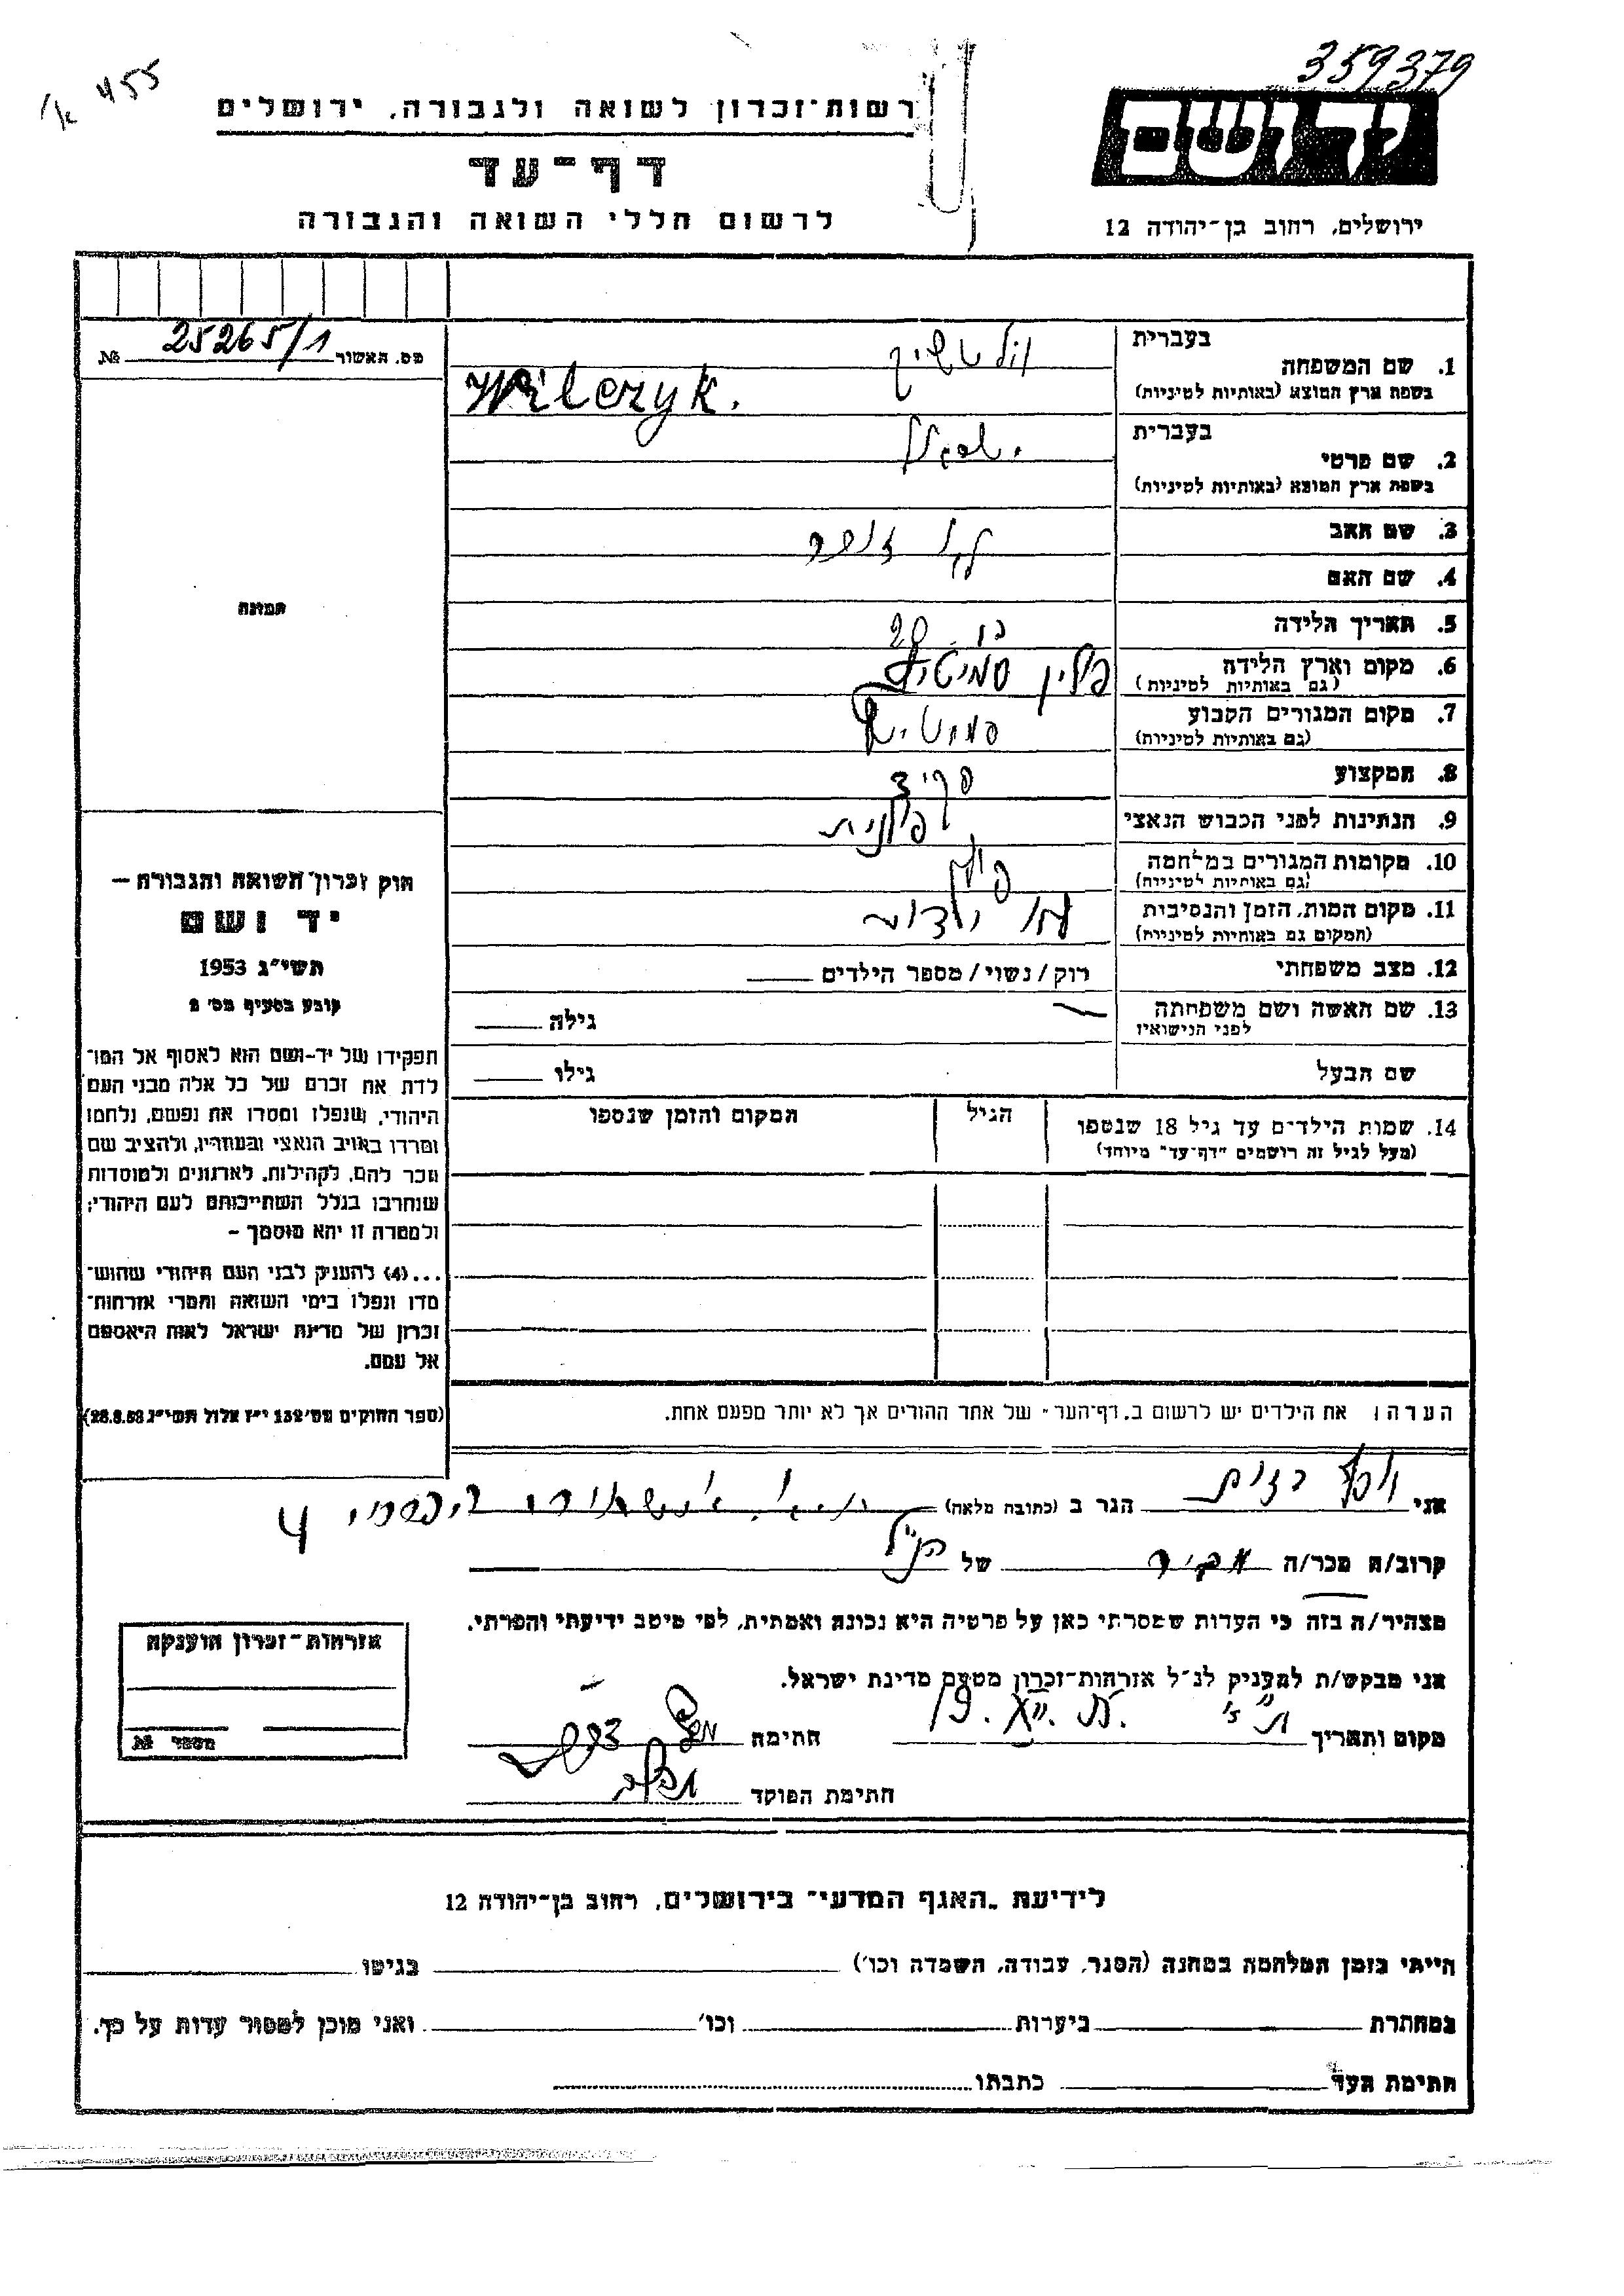 359379
455
יד ושם
ירושלים, רחוב בן-יהודה 12
רשות-זכרון לשואה ולגבורה, ירושלים
דף-עד
לרשום חללי השואה והגבורה
מס. האשור 25265/1 №
בעברית
1. שם המשפחה
בשפת ארץ המוצא (באותיות לטיניות)
Wilczyk.
בעברית
2. שם פרטי
בשפת ארץ המוצא (באותיות לטיניות)
3. שם האב
4. שם האם
5. תאריך הלידה
בן 20
6. מקום וארץ הלידה
(גם באותיות לטיניות)
פולין
7. מקום המגורים הקבוע
(גם באותיות לטיניות)
8. המקצוע
9. הנתינות לפני הכבוש הנאצי
פולנית
10. מקומות המגורים במלחמה
(גם באותיות לטיניות)
פולין
11. מקום המות, הזמן והנסיבות
(המקום גם באותיות לטיניות)
לא ידוע
12. מצב משפחתי רוק/נשוי/מספר הילדים
13. שם האשה ושם משפחתה
לפני הנישואין
גילה
שם הבעל גילו
14. שמות הילדים עד גיל 18 שנספו
(מעל לגיל זה רושמים "דף-עד" מיוחד)
הגיל
המקום והזמן שנספו
הערה: את הילדים יש לרשום ב„דף-העד" של אחד ההורים אך לא יותר מפעם אחת.
תמונה
חוק זכרון השואה והגבורה –
יד ושם
תשי"ג 1953
קובע בסעיף מס' 2
תפקידו של יד-ושם הוא לאסוף אל המו־
לדת את זכרם של כל אלה מבני העם
היהודי, שנפלו ומסרו את נפשם, נלחמו
ומרדו באויב הנאצי ובעוזריו, ולהציב שם
וזכר להם, לקהילות, לארגונים ולמוסדות
שנחרבו בגלל השתייכותם לעם היהודי;
ולמטרה זו יהא מוסמך –
...(4) להעניק לבני העם היהודי שהוש־
מדו ונפלו בימי השואה והמרי אזרחות־
זכרון של מדינת ישראל לאות היאספם
אל עמם.
(ספר החוקים מס' 132 י"ז אלול תשי"ג 28.8.53)
אני הגר ב (כתובה מלאה) 4
קרוב/ה מכר/ה מכיר של הנ"ל
מצהיר/ה בזה כי העדות שמסרתי כאן על פרטיה היא נכונה ואמתית, לפי מיטב ידיעתי והכרתי.
אני מבקש/ת להעניק לנ"ל אזרחות-זכרון מטעם מדינת ישראל.
מקום ותאריך חתימה
חתימת הפוקד
אזרחות-זכרון הוענקה
מספר №
לידיעת „האגף המדעי" בירושלים, רחוב בן-יהודה 12
הייתי בזמן המלחמה במחנה (הסגר, עבודה, השמדה וכו') בגיטו
במחתרת ביערות וכו' ואני מוכן למסור עדות על כך.
חתימת העד כתבתו